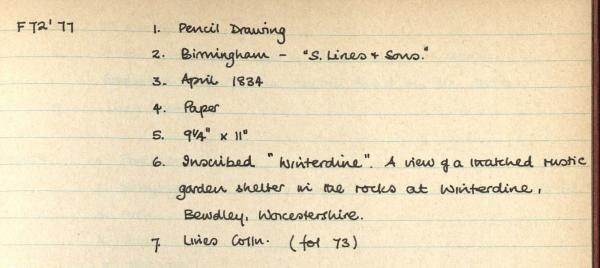 F72'77
1. Pencil Drawing
2. Birmingham - "S. Lines & Sons."
3. April 1834
4. Paper
5. 9¼" x 11"
6. Inscribed "Winterdine". A view of a thatched rustic
garden shelter in the rocks at Winterdine,
Bewdley, Worcestershire.
7. Lines Colln. (fol 73)